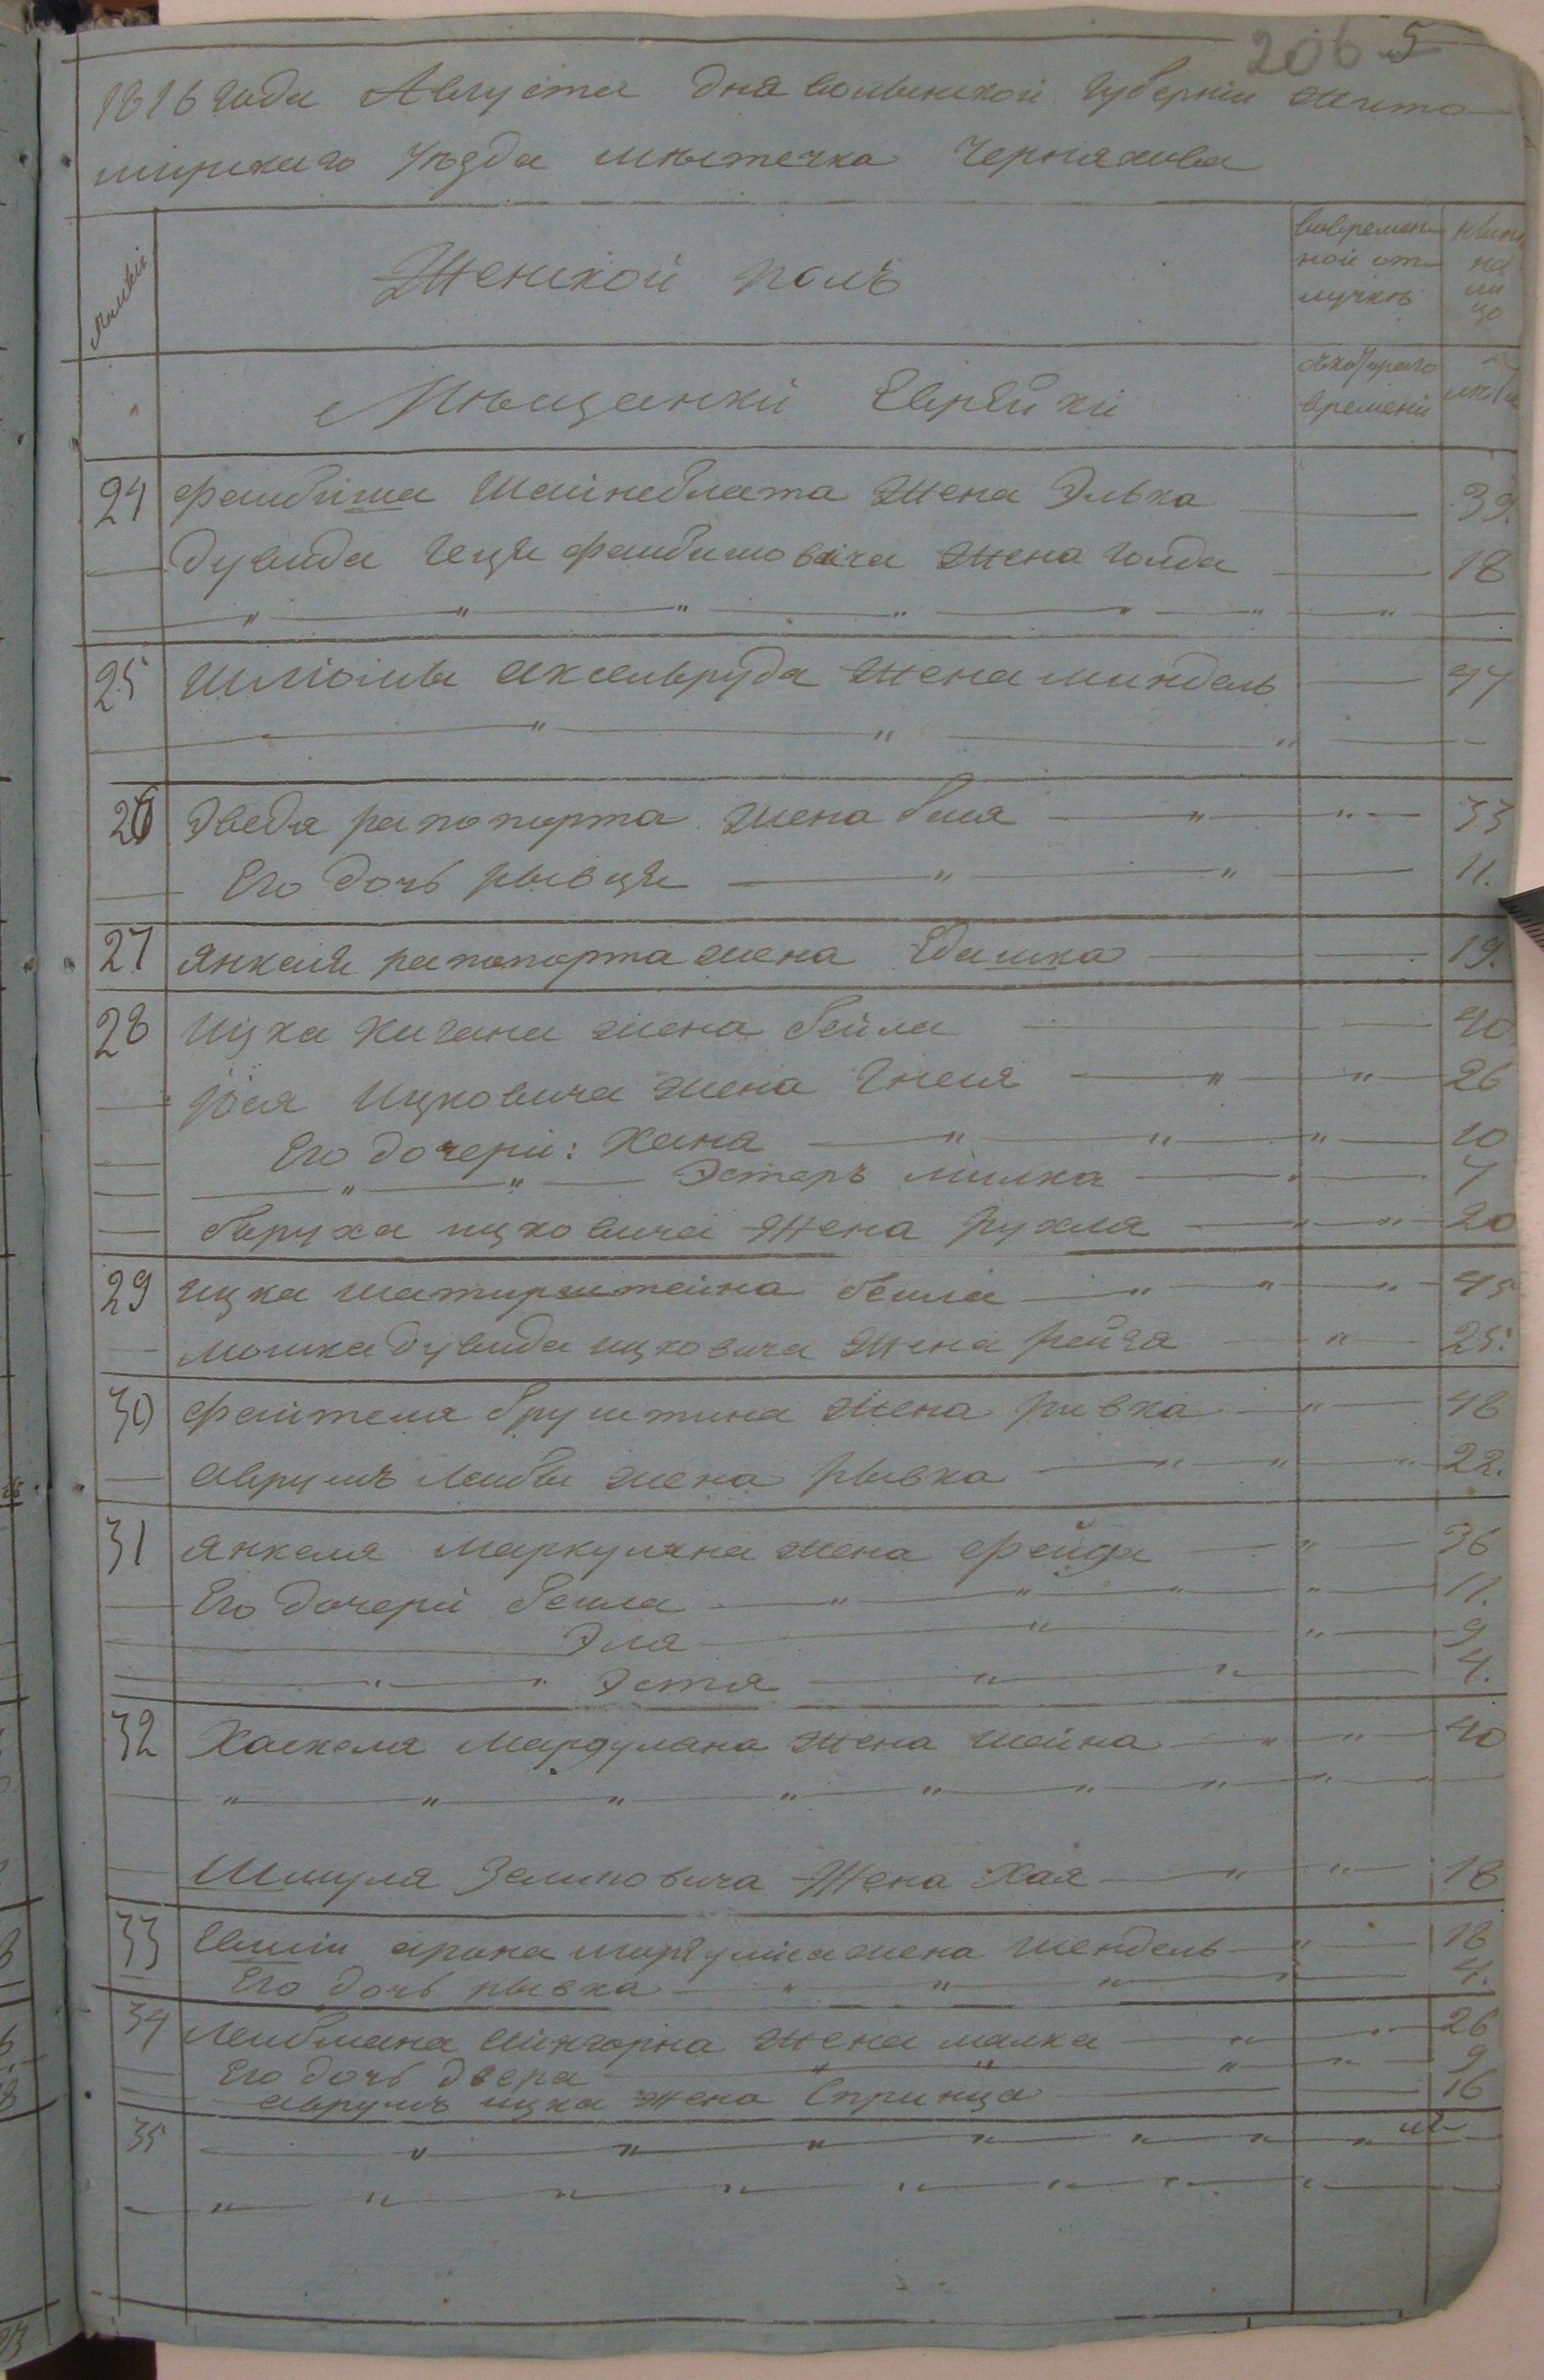 206 5
1816 года Августа дня волынской губернiи жито
мирскаго уѣзда мѣстечка Черняхова
Женской полъ
вовремен
ной от
лучкѣ
нынѣ
на
ли
цо
Мѣщанкй Еврейкй
съкотораго
времени
лѣта
24 фаибиша Шаинеблата жена Элька 39.
дувида геця фаибишовича жена голда 18
" " " " " " "
25 Шлiомы аксельруда жена миндель 44
" " "
26 Эведя рапопорта жена бася " " 33
Его дочь рывця " " 11.
27 Янкеля рапопорта жена Едашка 19.
28 Ицка кагана жена бейла 40.
Юся Ицковича жена Гнеся " " 26
Его дочери: Хана " " " 10
" " Эстеръ милка " 7
баруха ицковича жена рухля " " 20
29 ицка шатирштеина беила " " " 45
мошка дувида ицковича жена рейзя " 25.
30 фаителя бруштина жена ривка " 48
аврумъ лейбы жена рывка " " " 22.
31 Янкеля маркуляна жена фейга " 36
Его дочерй бейла " " " " 11.
Эля " " 9
" " Эстя " " 4.
32 Хаскеля маргуляна жена шейна " " 40
" " " " " " " "
Шмуля Зеликовича жена Хая " " 18
33 арона маргулиса жена шендель " 18
Его дочь рывка " " " " 4.
34 Лейбмана айнгорна жена малка " " 26
Его дочь двера " " " " 9
аврумъ ицка жена Спринца 16
35 " " " " " " "
" " " " " " " "